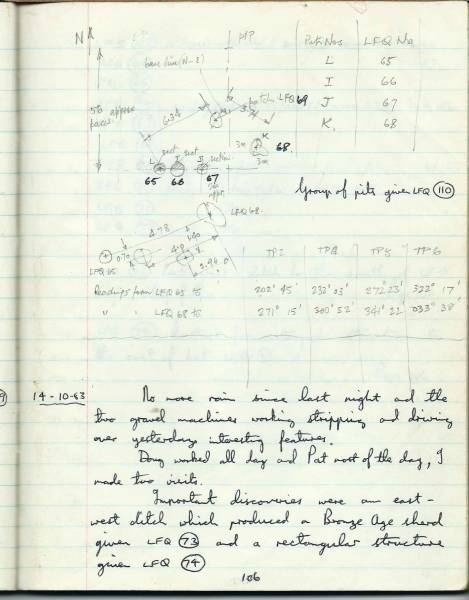 N
PIP
Pit Nos LFQ No
base line (N-S)
L 65
I 66
J 67
K 68
50 approx
paces
634
LFQ 69
K
68.
3m
3m
L I J
65 66 67
Group of pits given LFQ 110
LFQ 68.
4.78
LFQ 65
0.70
2.94
TP2 TP4 TP5 TP6
Readings from LFQ 65 to 202° 45' 232° 03' 272° 23' 322° 17'
" " LFQ 68 to 271° 15' 300° 52' 341° 22' 033° 38'
14-10-63 No more rain since last night and the
two gravel machines working stripping and driving
over yesterdays interesting features.
Doug worked all day and Pat most of the day, I
made two visits.
Important discoveries were an east-
west ditch which produced a Bronze Age sherd
given LFQ 73 and a rectangular structure
given LFQ 74
106